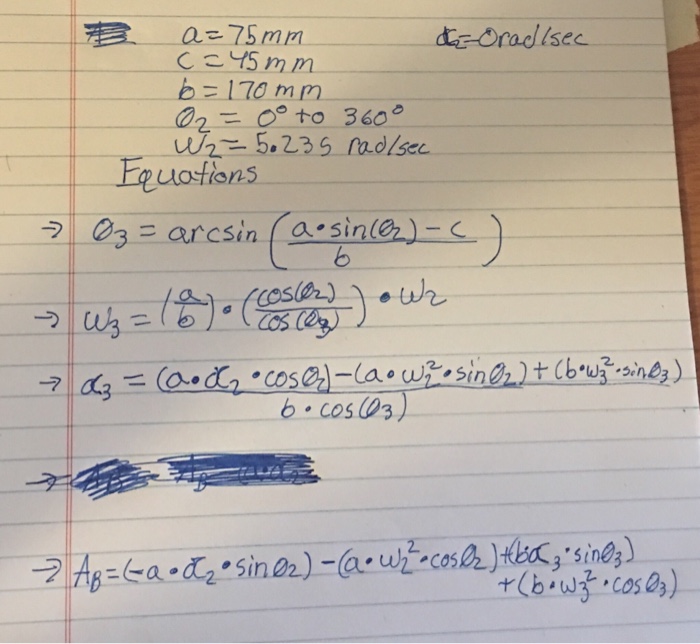 a = 75mm α₂=0rad/sec
c = 45mm
b = 170mm
θ₂ = 0° to 360°
ω₂ = 5.235 rad/sec
Equations
→ θ₃ = arcsin ( (a•sin(θ₂) - c) / b )
→ ω₃ = (a/b) • (cos(θ₂)/cos(θ₃)) • ω₂
→ α₃ = ((a•α₂•cosθ₂) - (a•ω₂²•sinθ₂) + (b•ω₃²•sinθ₃)) / (b•cos(θ₃))
→
→ A_B = (-a•α₂•sinθ₂) - (a•ω₂²•cosθ₂) + (b•α₃•sinθ₃)
+ (b•ω₃²•cosθ₃)